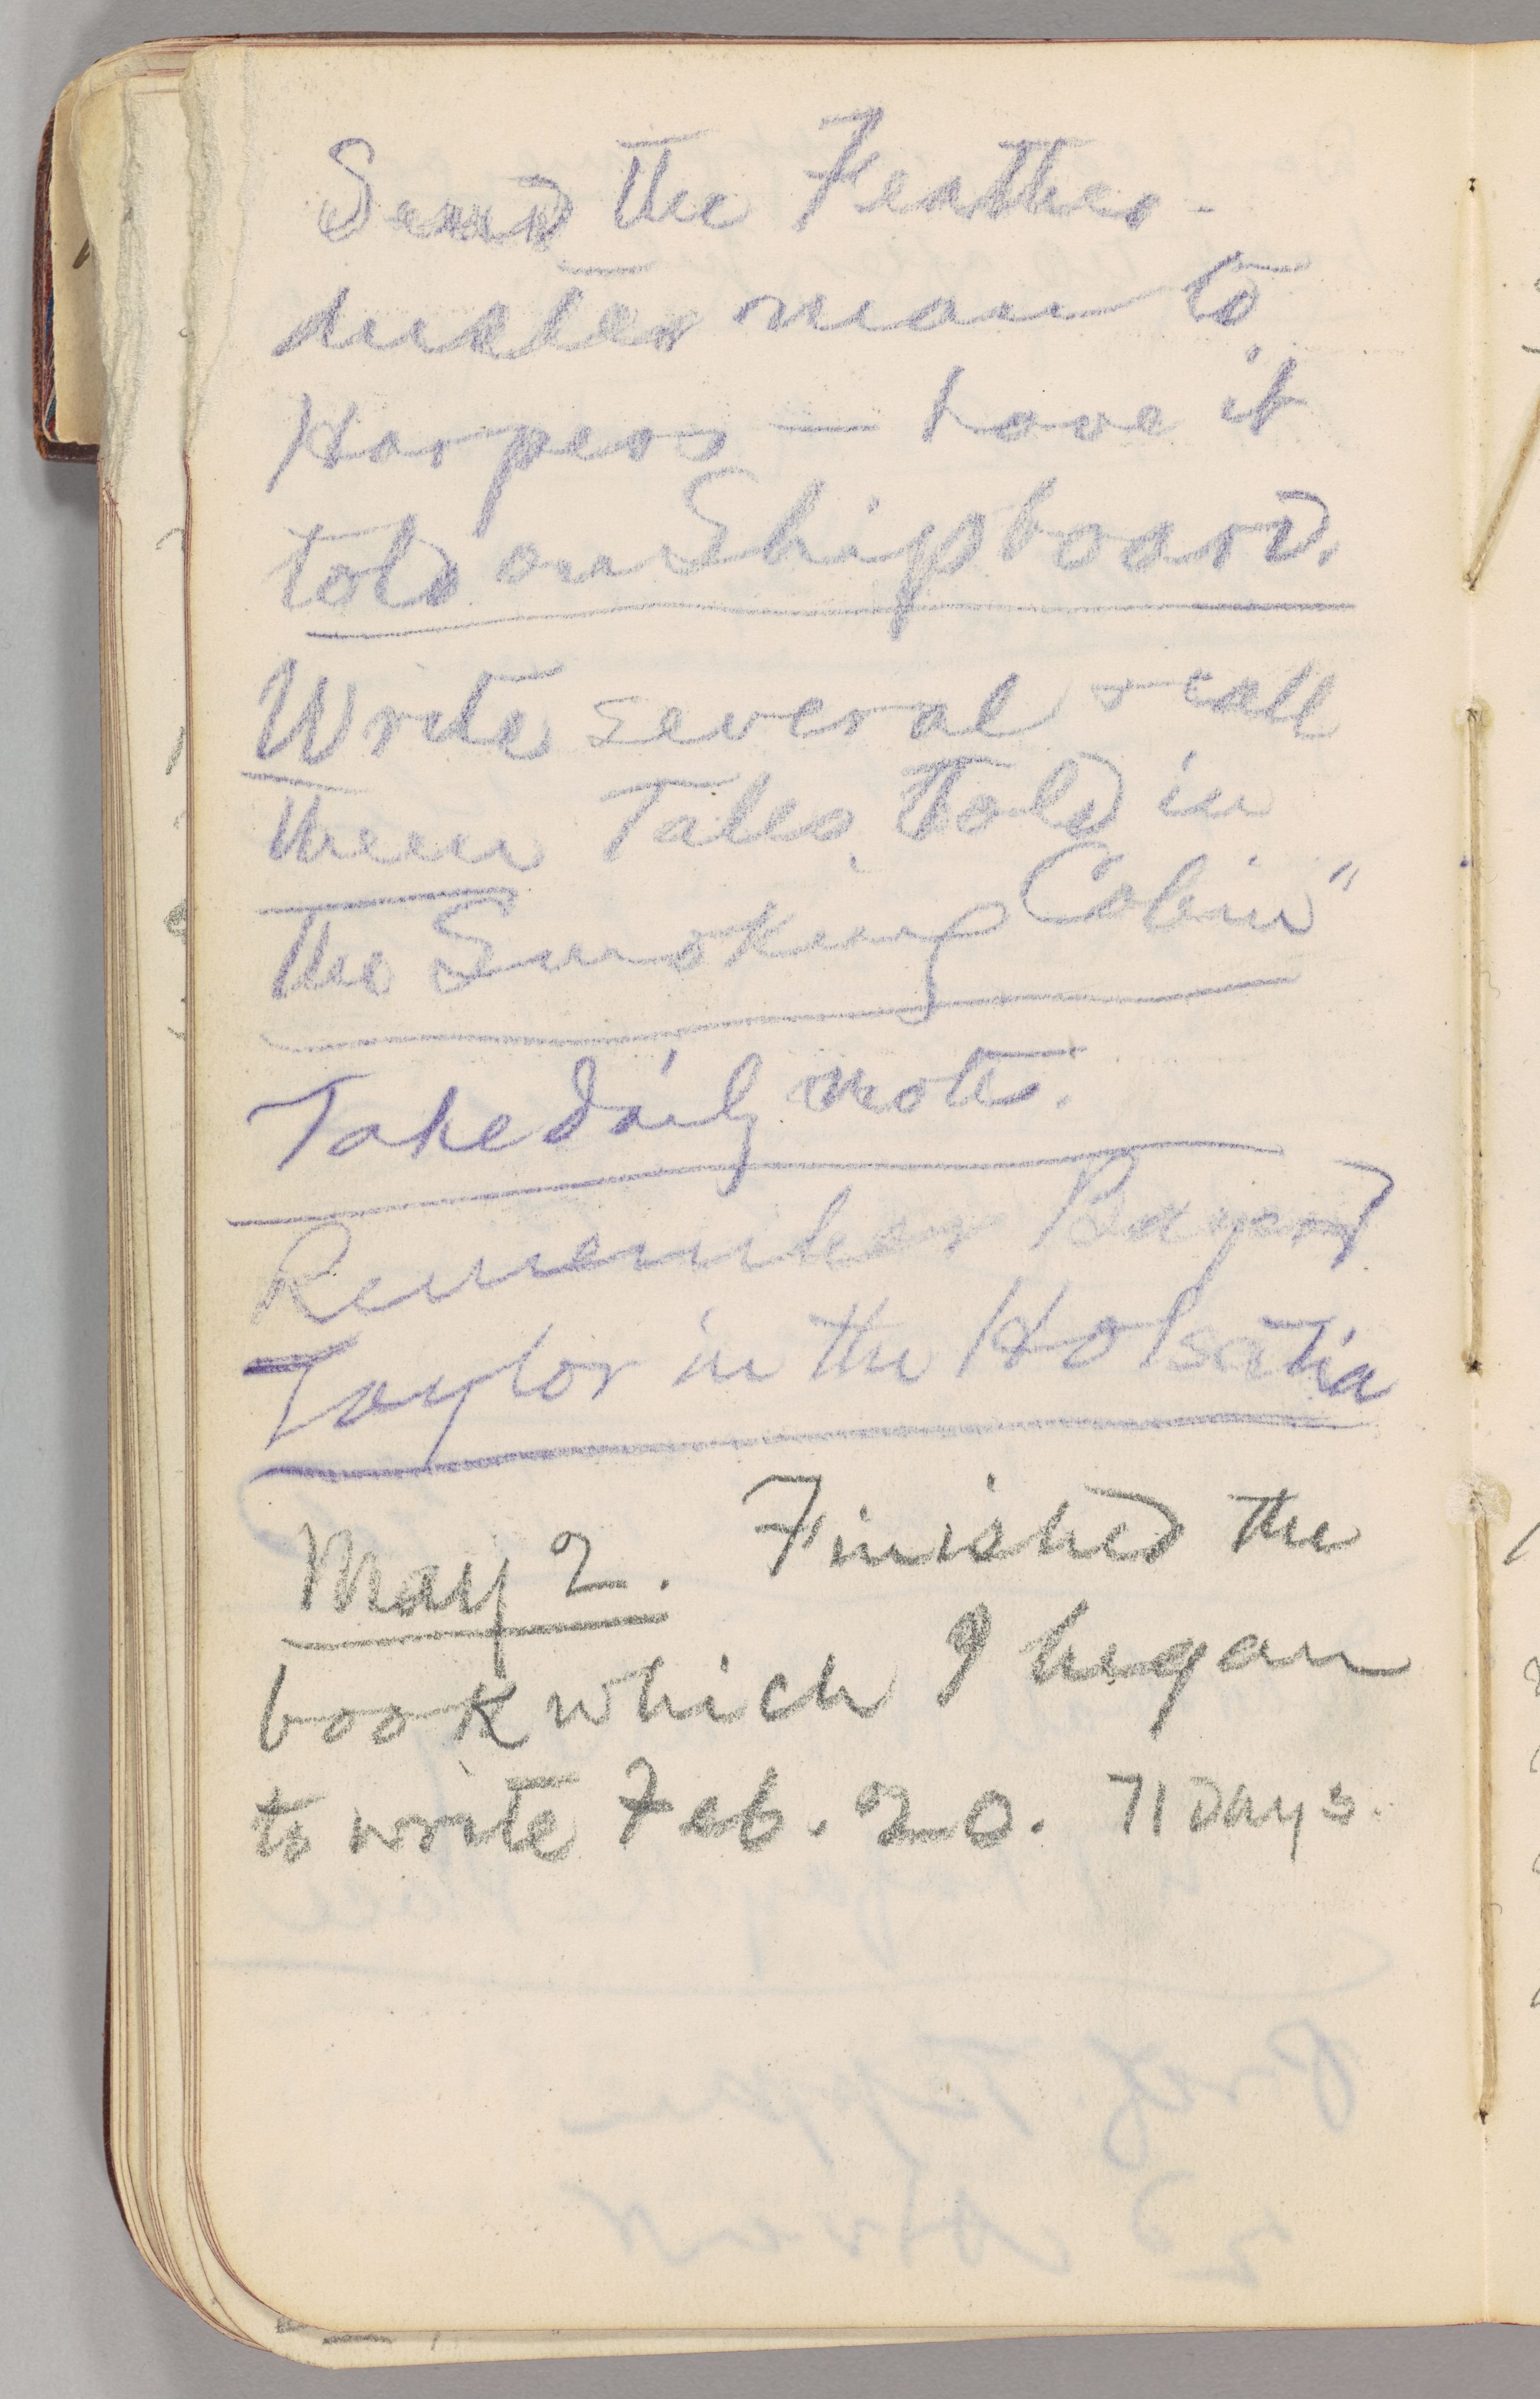 Send the Feather-
duster man to
Harpers — have it
told on Shipboard.
Write several & call
them Tales Told in
the Smoking Cabin"
Take daily notes.
Remember Bayard
Taylor in the Holsatia
May 2. Finished the
book which I began
to write Feb. 20. 71 days.